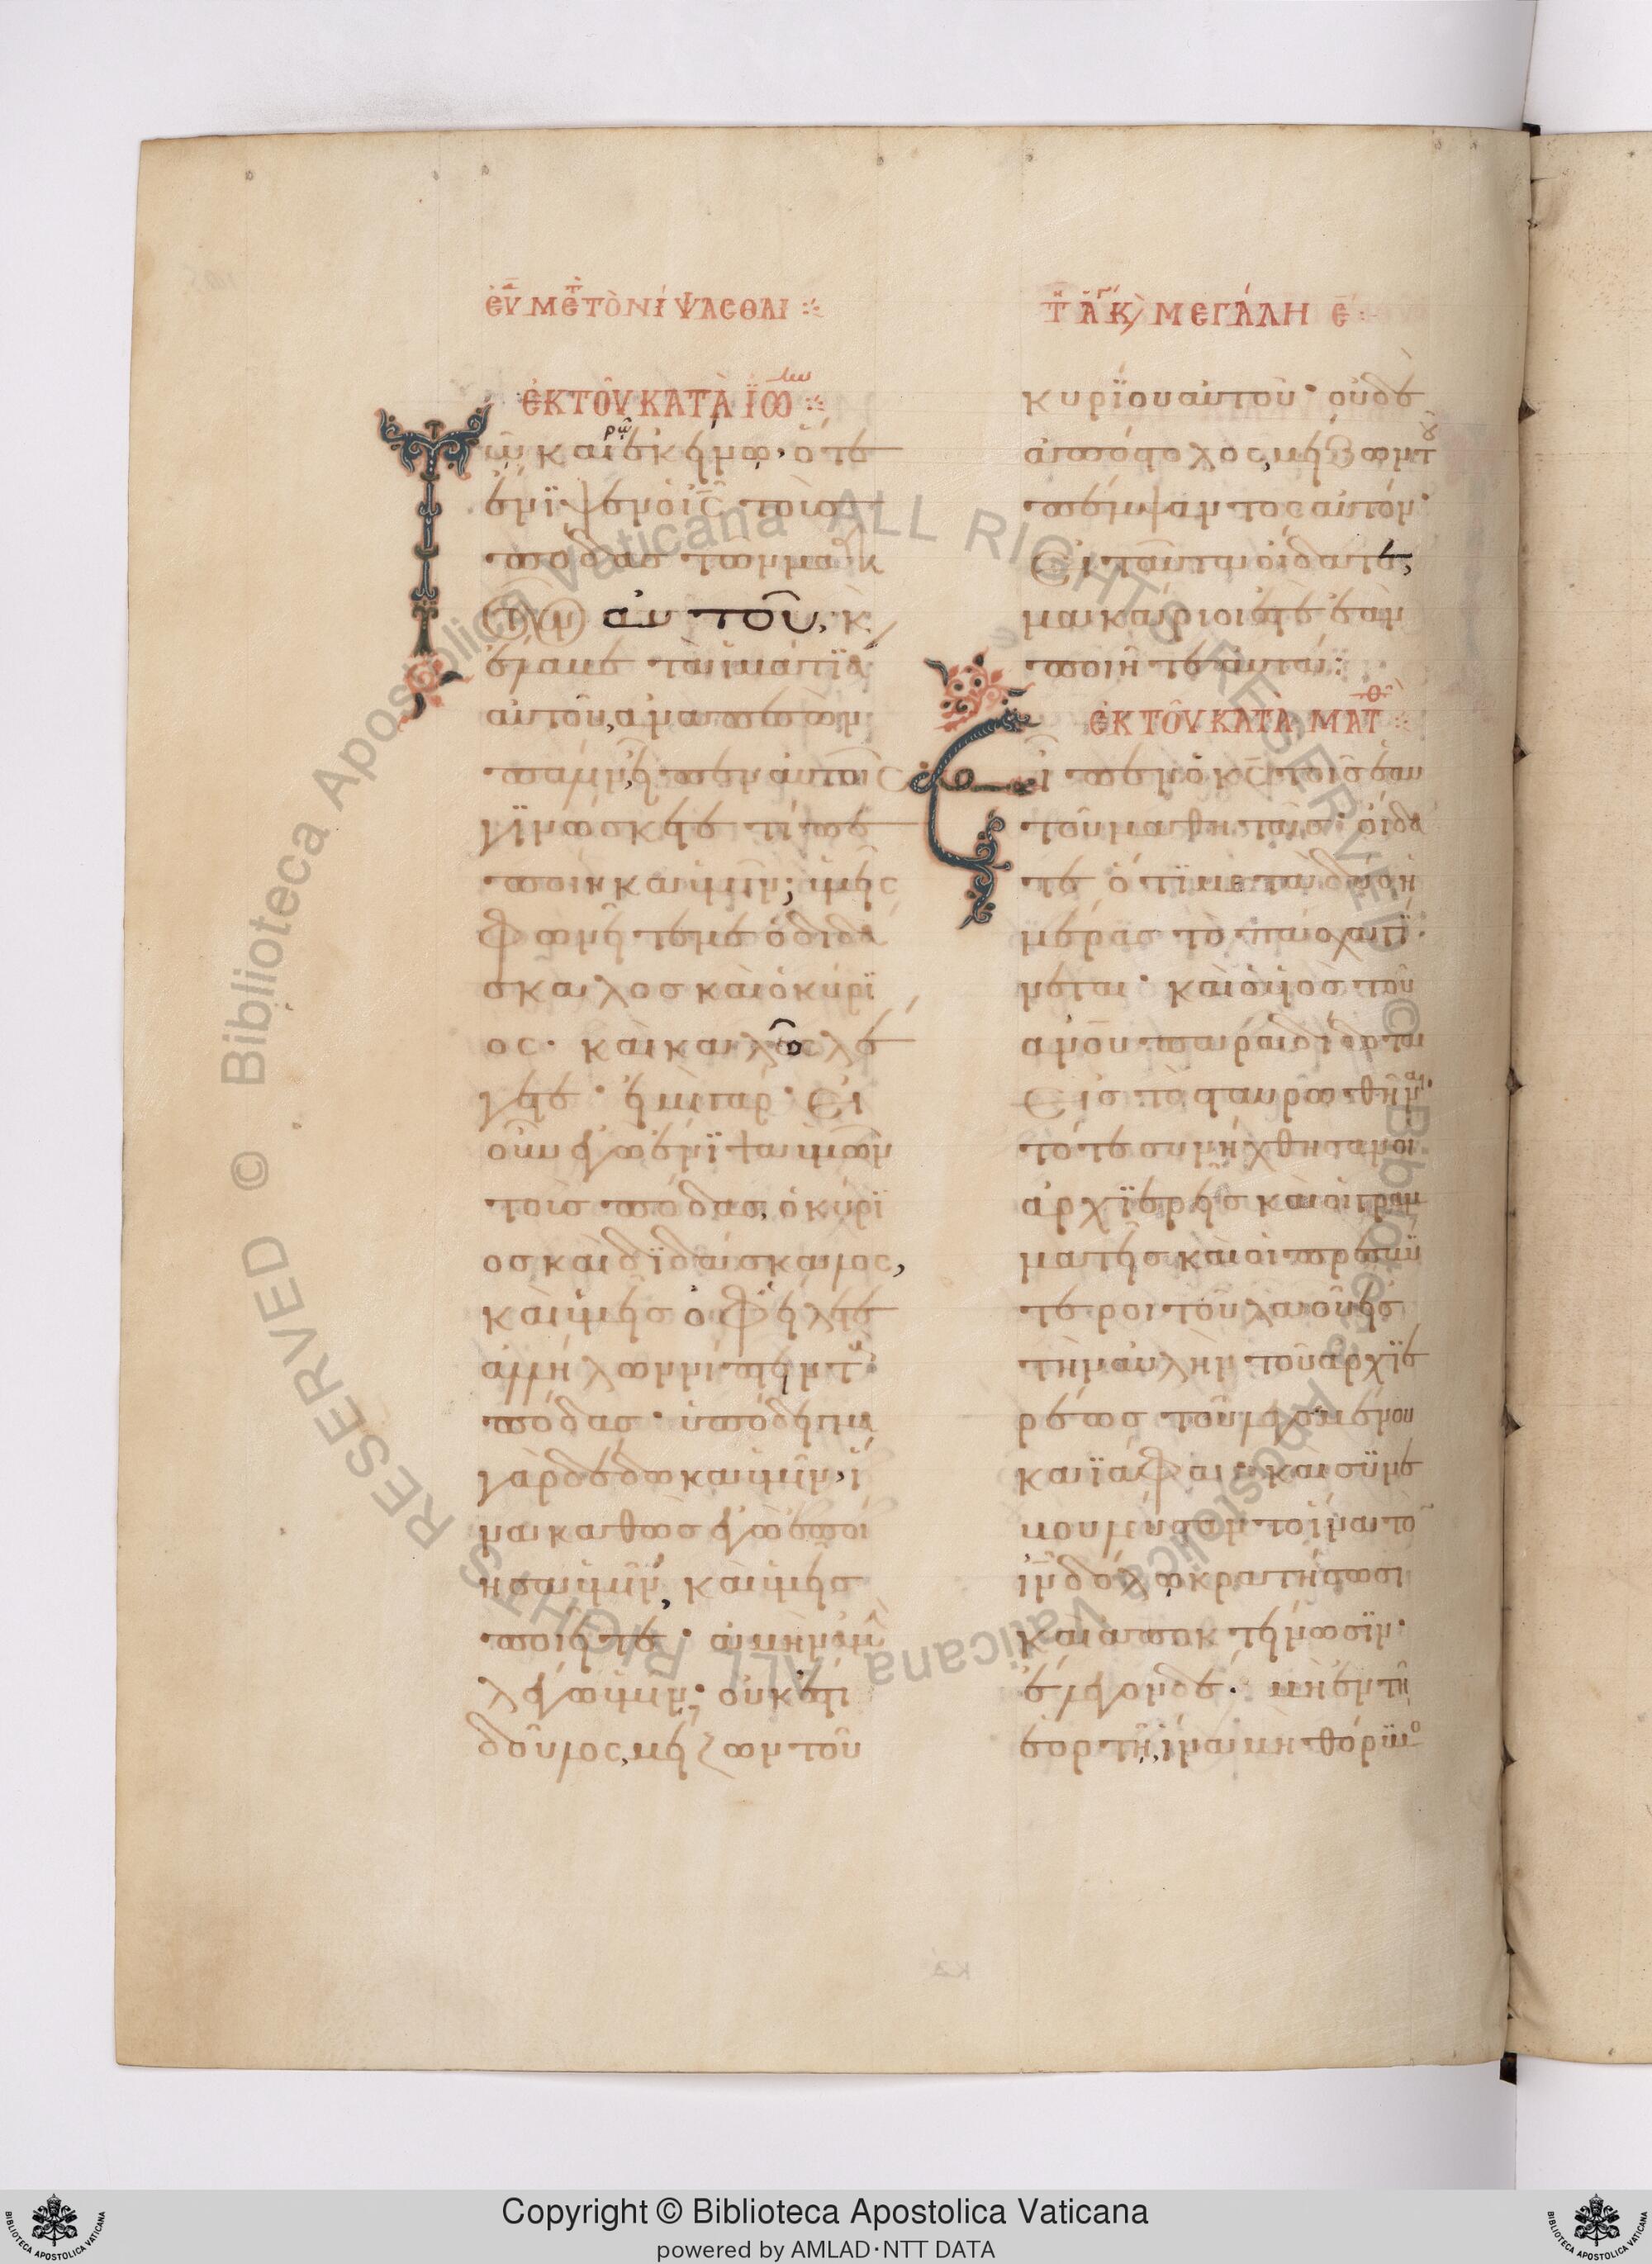 εὐ μετ τὸ νίψασθαι
ἐκ τοῦ κατὰ ἰω
Τῶ καιρῶ ἐκείνω, ὅτε
ἔνιψεν ὁ ις τοὺς
πόδας τῶν μαθη
τῶν αὐτοῦ, κ
ἔλαβε τὰ ἱμάτια
αὐτοῦ, ἀναπεσὼν
πάλιν, εἶπεν αὐτοῖς
γινώσκετε τί πε
ποίηκα ὑμῖν; ὑμεῖς
φωνεῖτέ με ὁ διδά
σκαλος καὶ ὁ κύρι
ος· καὶ καλῶς λέ
γετε· εἰμὶ γάρ· Εἰ
οὖν ἐγὼ ἔνιψα ὑμῶν
τοὺς πόδας, ὁ κύρι
ος καὶ διδάσκαλος,
καὶ ὑμεῖς ὀφείλετε
ἀλλήλων νίπτειν τ
πόδας· ὑπόδειγμα
γὰρ δέδωκα ὑμῖν, ἵ
να καθὼς ἐγὼ ἐποί
ησα ὑμῖν, καὶ ὑμεῖς
ποιεῖτε· ἀμὴν ἀμὴν
λέγω ὑμῖν· οὐκ ἔστι
δοῦλος, μείζων τοῦ
τῆ ἁγ κ μεγάλη ε
κυρίου αὐτοῦ· οὐδὲ
ἀπόστολος, μείζων τοῦ
πέμψαντος αὐτόν·
Εἰ ταῦτα οἴδατε,
μακάριοί ἐστε ἐὰν
ποιῆτε αὐτά:
ἐκ τοῦ κατὰ ματθ
Εἶπεν ὁ κς τοῖς ἑαυ
τοῦ μαθηταῖς· οἴδα
τε ὅτι μετὰ δύο ἡ
μέρας τὸ πάσχα γί
νεται· καὶ ὁ υἱὸς τοῦ
ανου παραδίδοται
Εἰς τὸ σταυρωθῆναι·
τότε συνήχθησαν οἱ
ἀρχιερεῖς καὶ οἱ γραμ
ματεῖς καὶ οἱ πρεσβύ
τεροι τοῦ λαοῦ εἰς
τὴν αὐλὴν τοῦ ἀρχιε
ρέως τοῦ λεγομένου
καϊάφα· καὶ συνε
βουλεύσαντο ἵνα τὸν
ιν δόλω κρατήσωσι
καὶ ἀποκτείνωσιν·
ἔλεγον δέ· μὴ ἐν τῆ
ἑορτῆ, ἵνα μὴ θόρυβο
Copyright © Biblioteca Apostolica Vaticana
powered by AMLAD·NTT DATA